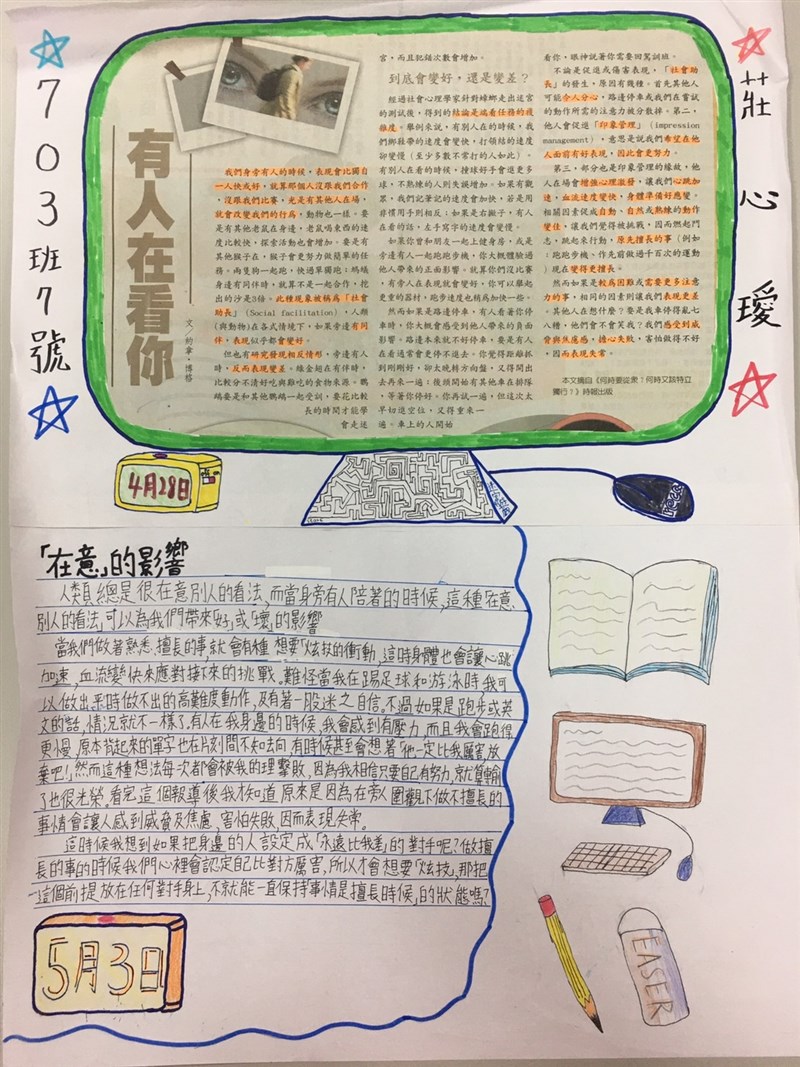 703班7號
莊心璦
有人在看你
文╱約拿‧博格
我們身旁有人的時候，表現會比獨自
一人快或好，就算那個人沒跟我們合作
，沒跟我們比賽，光是有其他人在場，
就會改變我們的行為，動物也一樣。要
是有其他老鼠在身邊，老鼠喝東西的速
度比較快，探索活動也會增加。要是有
其他猴子在，猴子會更努力做簡單的任
務。兩隻狗一起跑，快過單獨跑；螞蟻
身邊有同伴時，就算不是一起合作，挖
出的沙是3倍。此種現象被稱為「社會
助長」（Social facilitation），人類
（與動物）在各式情境下，如果旁邊有同
伴，表現似乎都會變好。
但也有研究發現相反情形，旁邊有人
時，反而表現變差。綠金翅在有伴時，
比較分不清好吃與難吃的食物來源。鸚
鵡要是和其他鸚鵡一起受訓，要花比較
長的時間才能學
會走迷
宮，而且犯錯次數會增加。
到底會變好，還是變差？
經過社會心理學家針對蟑螂走出迷宮
的測試後，得到的結論是端看任務的複
雜度。舉例來說，有別人在的時候，我
們綁鞋帶的速度會變快，打領結的速度
卻變慢（至少多數不常打的人如此）。
有別人在看的時候，撞球好手會進更多
球，不熟練的人則失誤增加。如果有觀
眾，我們記筆記的速度會加快，若是用
非慣用手則相反：如果是右撇子，有人
在看的話，左手寫字的速度會變慢。
如果你曾和朋友一起上健身房，或是
旁邊有人一起跑跑步機，你大概體驗過
他人帶來的正面影響。就算你們沒比賽
，有旁人在表現就會變好，你可以舉起
更重的器材，跑步速度也稍為加快一些。
然而如果是路邊停車，有人看著你停
車時，你大概會感受到他人帶來的負面
影響。路邊本來就不好停車，要是有人
在看通常會更停不進去。你覺得距離抓
到剛剛好，卻太晚轉方向盤，又得開出
去再來一遍；後頭開始有其他車在排隊
，等著你停好。你再試一遍，但這次太
早切進空位，又得重來一
遍。車上的人開始
看你，眼神說著你需要回駕訓班。
不論是促進或傷害表現，「社會助
長」的發生，原因有幾種。首先其他人
可能令人分心，路邊停車或我們在嘗試
的動作所需的注意力被分散掉。第二，
他人會促進「印象管理」（impression
management），意思是說我們希望在他
人面前有好表現，因此會更努力。
第三，部分也是印象管理的緣故，他
人在場會增強心理激發，讓我們心跳加
速，血流速度快，身體準備好應變。
相關因素促成自動、自然或熟練的動作
變佳，讓我們覺得被挑戰，因而燃起鬥
志，跳起來行動，原先擅長的事（例如
：跑跑步機、作先前做過千百次的運動
）現在變得更擅長。
然而如果是較為困難或需要更多注意
力的事，相同的因素則讓我們表現更差
。其他人在想什麼？要是我車停得亂七
八糟，他們會不會笑我？我們感受到威
脅與焦慮感，擔心失敗，害怕做得不好
，因而表現失常。
本文摘自《何時要從眾？何時又該特立
獨行？》時報出版
4月28日
「在意」的影響
人類總是很在意別人的看法，而當身旁有人陪著的時候，這種在意
別人的看法，可以為我們帶來「好」或「壞」的影響
當我們做著熟悉、擅長的事，就會有種想要「炫技」的衝動，這時身體也會讓心跳
加速，血流變快來應對接下來的挑戰。難怪當我在踢足球和游泳時，我可
以做出平時做不出的高難度動作，及有著一股迷之自信。不過如果是跑步或英
文的話，情況就不一樣了。有人在我身邊的時候，我會感到有壓力，而且我會跑得
更慢，原本背起來的單字也在片刻間不知去向，有時候甚至會想著「他一定比我厲害，放
棄吧！」，然而這種想法每次都會被我的理擊敗，因為我相信只要自己有努力，就算輸
了也很光榮。看完這個報導後我才知道原來是因為在旁人圍觀下做不擅長的
事情會讓人感到威脅及焦慮，害怕失敗，因而表現失常。
這時候我想到如果把身邊的人設定成「永遠比我差」的對手呢？做擅
長的事的時候我們心裡會認定自己比對方厲害，所以才會想要「炫技」，那把
這個前提放在任何對手身上，不就能一直保持「事情是擅長時候」的狀態嗎？
5月3日
EASER